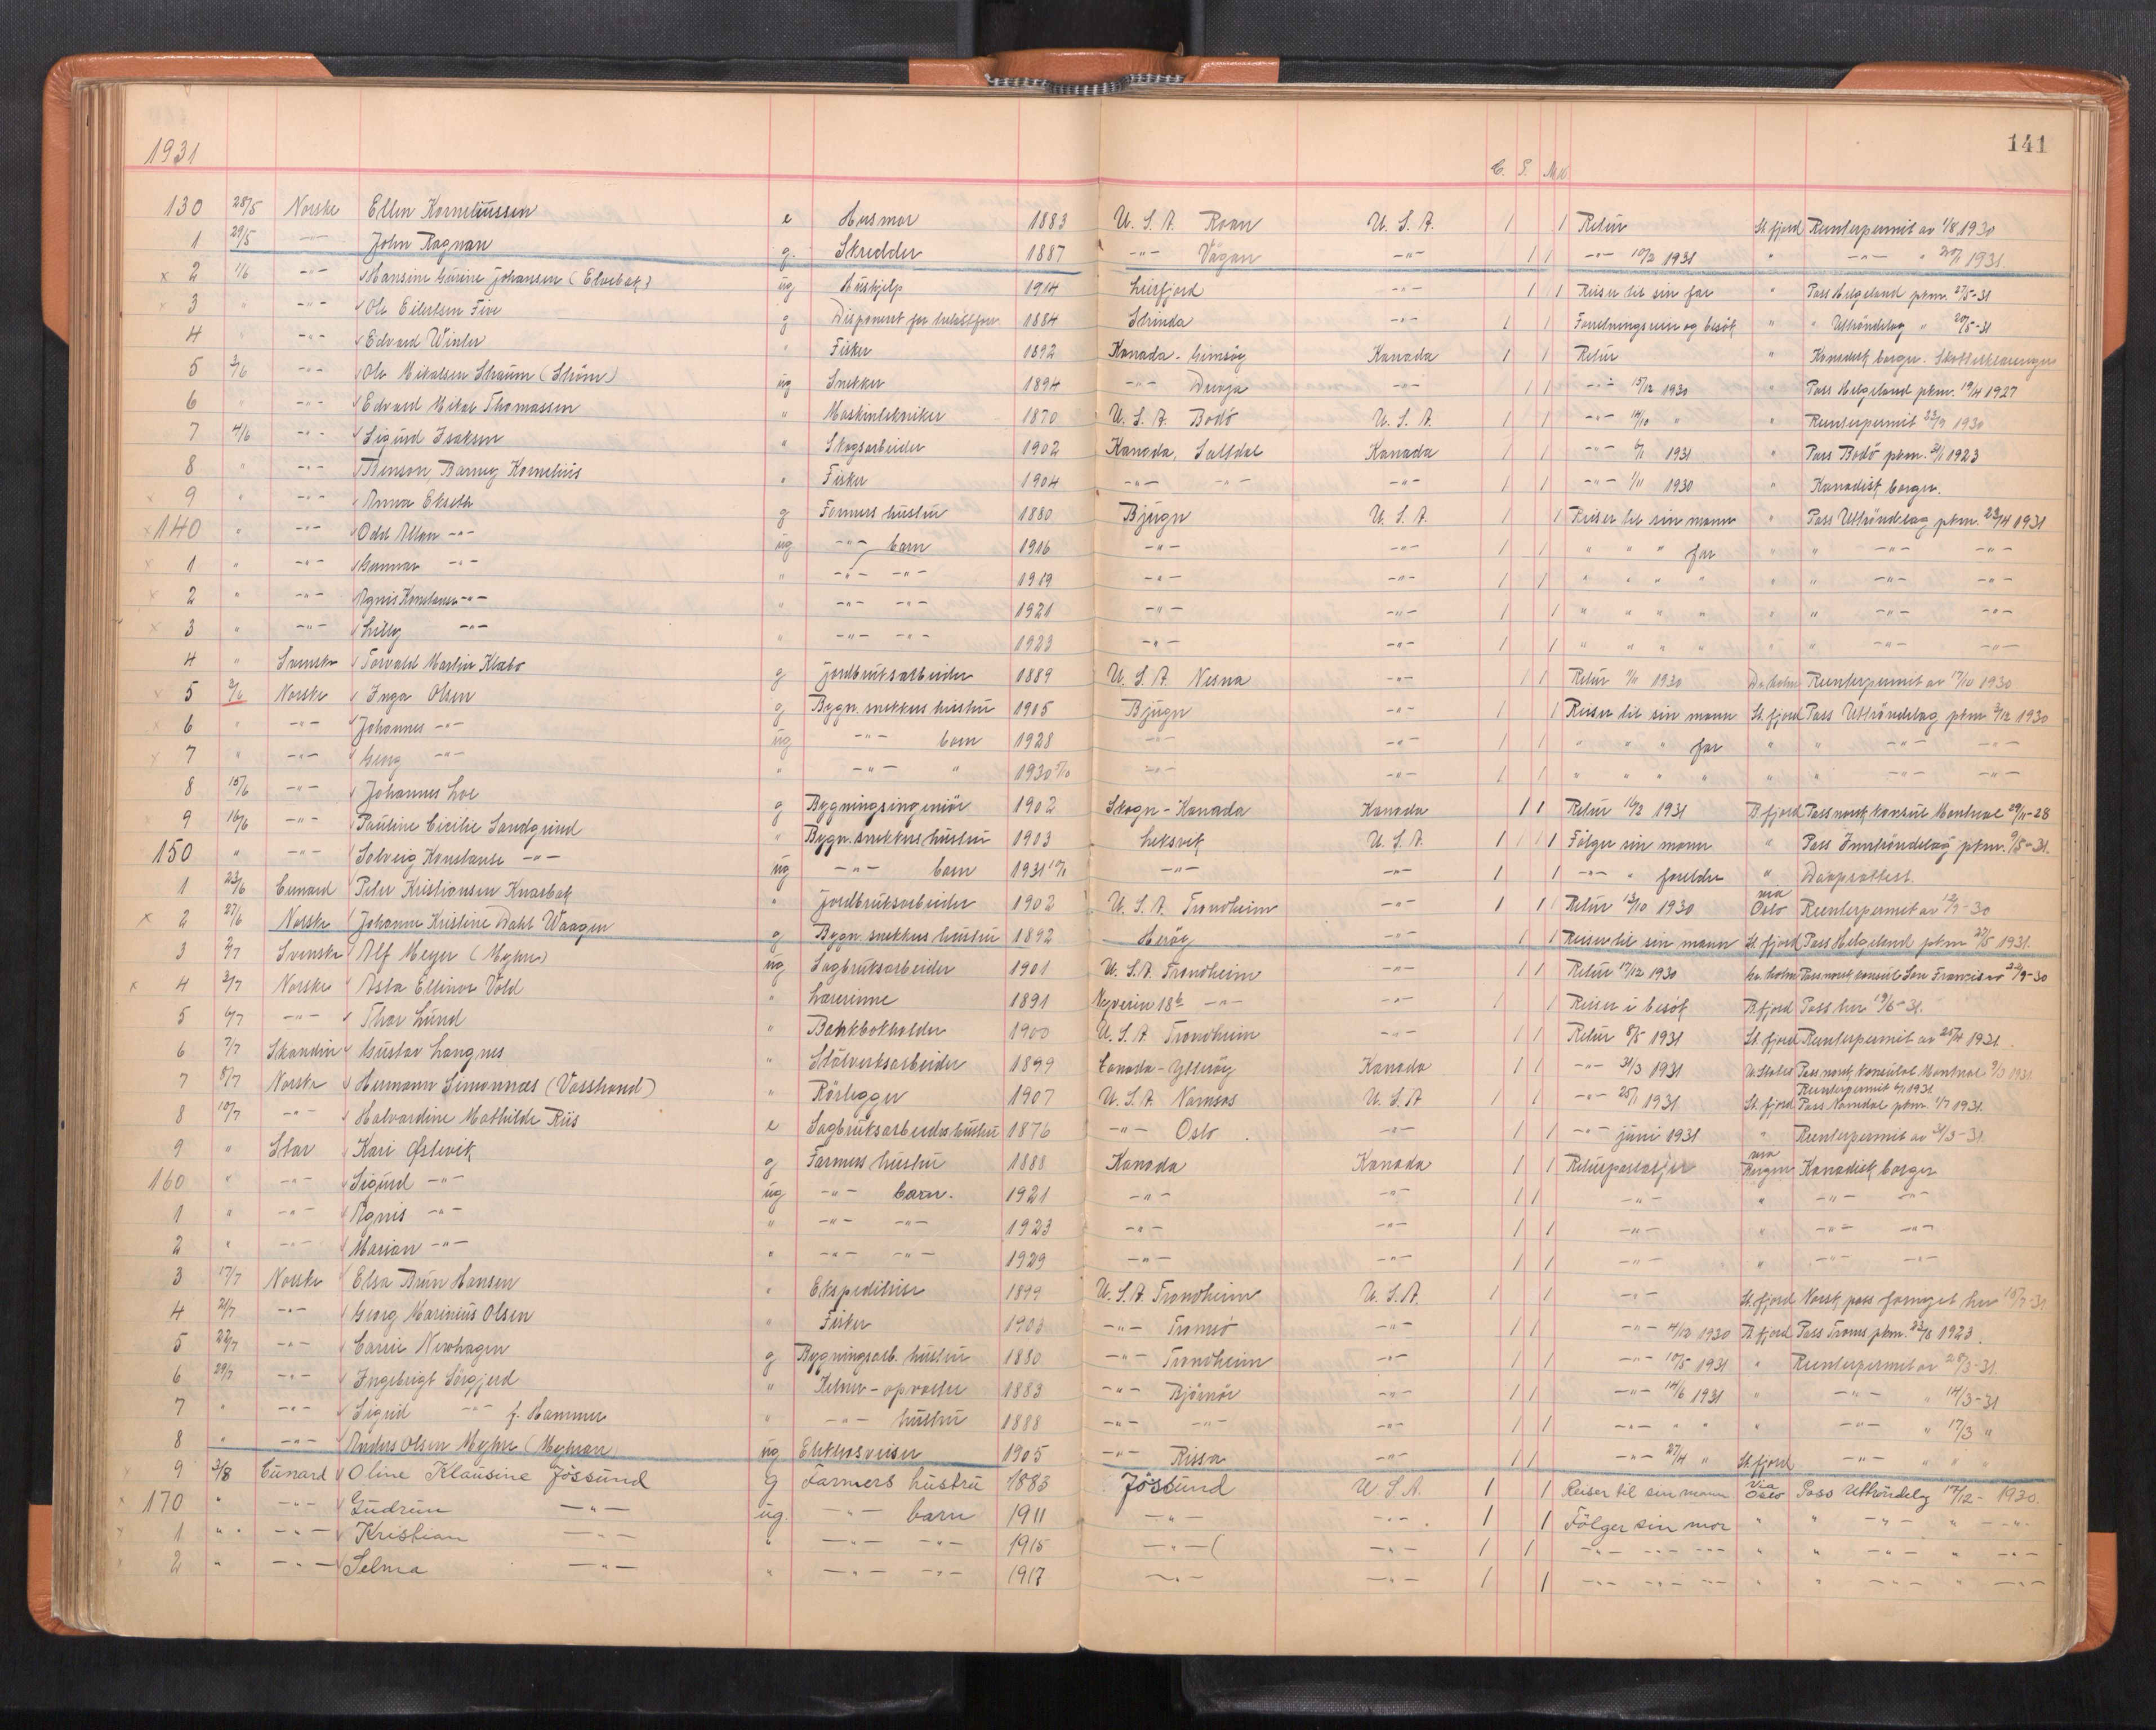 1931
141
C. S. M. K.
130 28/5 Norske Ellen Korneliussen e Husmor 1883 U. S. A. Roan U. S. A. 1 1 Retur St. fjord Reenterpermit av 1/8 1930
1 29/5 -"- John Ragnan g. Skredder 1887 -"- Vågan -"- 1 1 -"- 10/2 1931 " -"- " 20/1 1931.
x 2 1/6 -"- Hansine Gurine Johansen (Elvebak) ug Hushjelp 1914 Leirfjord -"- 1 1 Reiser til sin far " Pass Helgeland pkm. 27/5-31
x 3 " -"- Ole Eilertsen Five g Disponent for 1884 Strinda -"- 1 1 Forretningsreise og besök " " Uttröndelag " 20/5-31
4 " -"- Edvard Winter " Fisker 1892 Kanada - Gimsöy Kanada 1 1 Retur " Kanadisk borger.
5 3/6 -"- Ole Mikalsen Straum (Ström) ug Snekker 1894 -"- Drevja -"- 1 1 -"- 15/12 1930 " Pass Helgeland pkm. 19/4 1927
6 " -"- Edvard Mikal Thomassen " Maskintekniker 1870 U. S. A. Bodö U. S. A. 1 1 -"- 14/10 " " Reenterpermit 23/9 1930
7 4/6 -"- Sigurd Isaksen " Skogsarbeider 1902 Kanada, Saltdal Kanada 1 1 -"- 6/1 1931 " Pass Bodö pkm. 21/1 1923
8 " -"- Benson Barney Kornelius " Fisker 1904 -"- -"- -"- 1 1 -"- 1/11 1930 " Kanadisk borger.
x 9 " -"- Anna Ekseth g Farmers hustru 1880 Bjugn U. S. A. 1 1 Reiser til sin mann " Pass Uttröndelag pkm. 23/4 1931
x 140 " -"- Odd Allan -"- ug -"- barn 1916 -"- -"- 1 1 " " " far " " -"- -"-
x 1 " -"- Gunnar -"- " -"- -"- 1919 -"- -"- 1 1 " " " " " " -"- -"-
x 2 " -"- Agnes Konstanse -"- " -"- -"- 1921 -"- -"- 1 1 " " " " " " -"- -"-
x 3 " -"- Lilly -"- " -"- -"- 1923 -"- -"- 1 1 " " " " " " -"- -"-
4 " Svenske Torvald Martin Klæbo g Jordbruksarbeider 1889 U. S. A. Nesna -"- 1 1 Retur 9/11 1930 Dr.holm Reenterpermit av 17/10 1930
x 5 9/6 Norske Inga Olsen g Bygn. snekkers hustru 1905 Bjugn -"- 1 1 Reiser til sin mann St. fjord Pass Uttröndelag pkm. 3/12 1930
x 6 " -"- Johannes -"- ug -"- barn 1928 -"- -"- 1 1 " " " far " " -"- -"-
x 7 " -"- Georg -"- " -"- " 1930 5/10 -"- -"- 1 1 " " " " " " -"- -"-
8 15/6 -"- Johannes Loe g Bygningsingeniör 1902 Skogn - Kanada Kanada 1 1 Retur 16/2 1931 B. fjord Pass norsk konsul Montreal 29/11-28
x 9 16/6 -"- Pauline Cicilie Sandgrind " Bygn. snekkers hustru 1903 Leksvik U. S. A. 1 1 Fölger sin mann " Pass Inntröndelag pkm. 9/5-31.
150 " -"- Solveig Konstanse -"- ug -"- barn 1931 10/1 -"- -"- 1 1 -"- " foreldre " Dåpsattest.
1 23/6 Cunard Peter Kristiansen Knarbak " Jordbruksarbeider 1902 U. S. A. Trondheim -"- 1 1 Retur 13/10 1930 via Oslo Reenterpermit av 12/9-30
x 2 27/6 Norske Johanne Kristine Dahl Waagen g Bygn. snekkers hustru 1892 Heröy -"- 1 1 Reiser til sin mann St. fjord Pass Helgeland pkm 27/5 1931.
3 2/7 Svenske Alf Meyer (Myhre) ug Sagbruksarbeider 1901 U. S. A. Trondheim -"- 1 1 Retur 17/12 1930 Gr. holm Pass norsk konsul San Francisco 22/9-30
x 4 3/7 Norske Asta Ellinor Vold " Lærerinne 1891 -"- -"- 1 1 Reiser i besök B. fjord Pass her 19/6-31.
5 6/7 -"- Thor Lund " Bankbokholder 1900 U. S. A. Trondheim -"- 1 1 Retur 8/5 1931 St. fjord Reenterpermit av 25/4 1931.
6 7/7 Skandin Gustav Langnes " Stålverksarbeider 1899 Kanada - Ytteröy Kanada 1 1 -"- 31/3 1931 U. States Pass norsk konsulat Montreal 9/3 1931
7 8/7 Norske Hermann Simonnæs (Vasstrand) " Rörlegger 1907 U. S. A. Namsos U. S. A 1 1 -"- 25/1 1931 St. fjord Reenterpermit 6/1 1931. Pass Namdal pkm. 1/7 1931.
8 10/7 -"- Halvardine Mathilde Riis e Sagbruksarbeiders hustru 1876 -"- Oslo. -"- 1 1 -"- juni 1931 " Reenterpermit av 31/3-31.
9 " Star Kari Østevik g Farmers hustru 1888 Kanada Kanada 1 1 Returpassasjer via Bergen Kanadisk borger
160 " -"- Sigurd -"- ug -"- barn. 1921 -"- -"- 1 1 -"- " -"- -"-
1 " -"- Agnes -"- " -"- -"- 1923 -"- -"- 1 1 -"- " -"- -"-
2 " -"- Marian -"- " -"- -"- 1929 -"- -"- 1 1 -"- " -"- -"-
3 17/7 Norske Elsa Brun Hansen " Ekspeditrise 1899 U. S. A. Trondheim U. S. A. 1 1 -"- St. fjord Norsk pass fornyet her 15/7-31
4 21/7 -"- Georg Marinius Olsen " Fisker 1903 -"- Tromsö -"- 1 1 -"- 4/12 1930 B. fjord Pass Troms pkm. 23/8 1923.
5 22/7 -"- Carrie Newhagen g Bygningsarb. hustru 1880 -"- Trondheim -"- 1 1 -"- 10/5 1931 " Reenterpermit av 28/3-31.
6 29/7 -"- Ingebrigt Sörgjerd " Kelner - opvarter 1883 -"- Björnör -"- 1 1 -"- 14/6 1931 " -"- " 14/3-31
7 " -"- Sigrid -"- f. Hammer " -"- hustru 1888 -"- -"- -"- 1 1 -"- " " " -"- " 17/3 "
8 " -"- Anders Olsen Myhre (Myhran) ug Elektrosveiser 1905 -"- Rissa -"- 1 1 -"- 27/4 " St. fjord -"- " " "
x 9 3/8 Cunard Oline Klausine Jössund g Farmers hustru 1883 Jössund U. S. A. 1 1 Reiser til sin mann Via Oslo Pass Uttröndelag 17/12 - 1930.
x 170 " -"- Gudrun -"- ug. -"- barn 1911 -"- -"- 1 1 Fölger sin mor " " -"- " -"-
x 1 " -"- Kristian -"- " -"- -"- 1915 -"- -"- 1 1 -"- -"- -"- " " -"- " -"-
x 2 " -"- Selma -"- " -"- -"- 1917 -"- -"- 1 1 -"- -"- -"- " " -"- " -"-